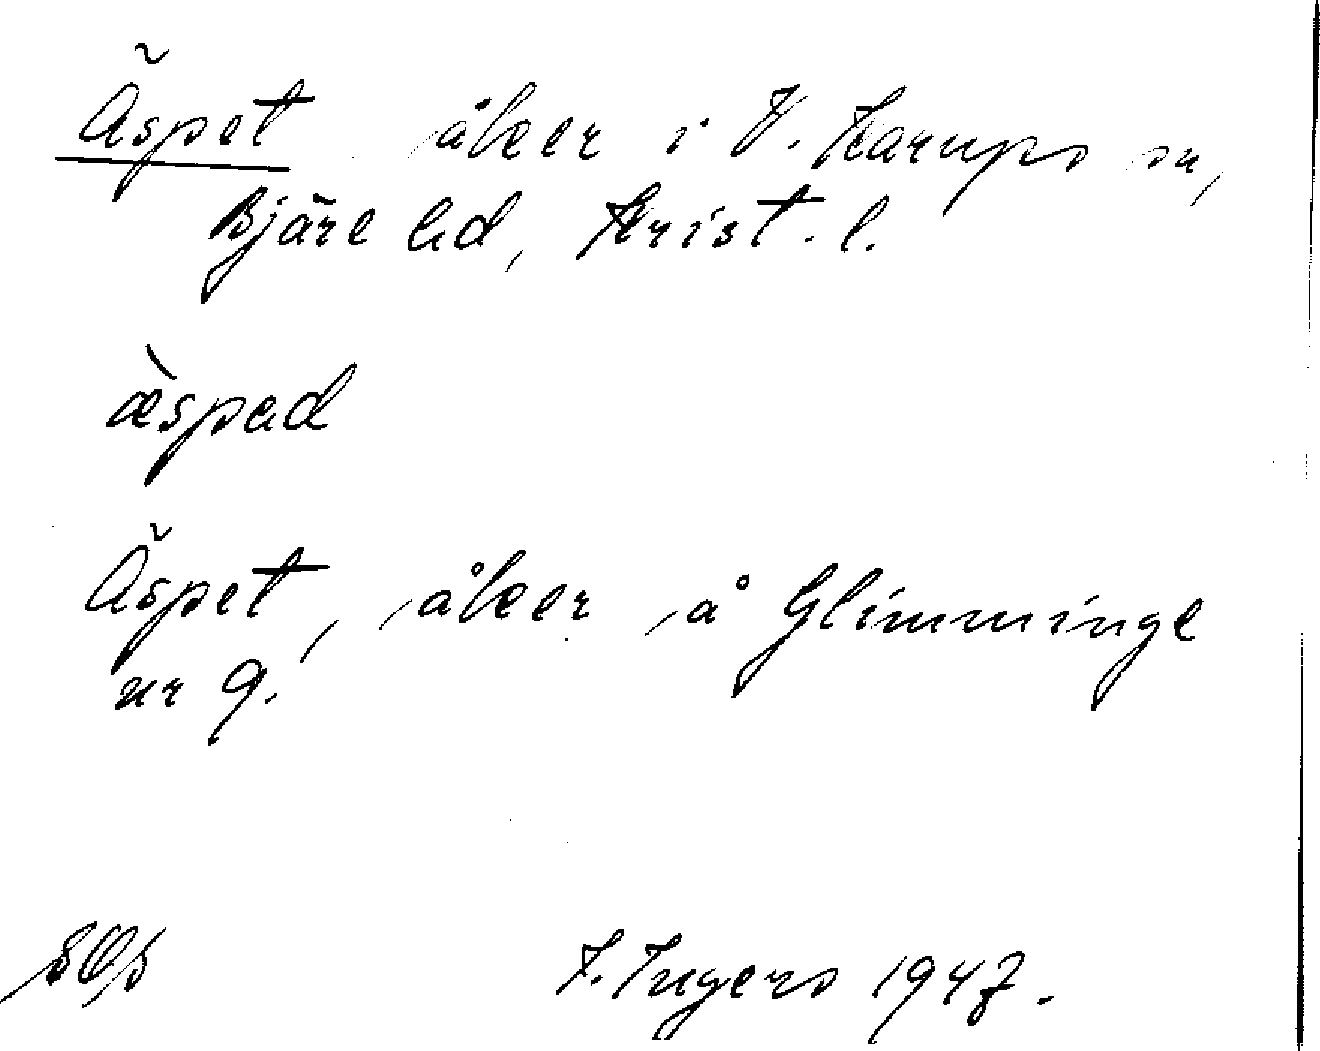 Äspet åker i V. Karups sn,
Bjäre hd, Krist. l.
æ̀spad
Äspet, åker å Glimminge
nr 9.
I. Ingers 1947.